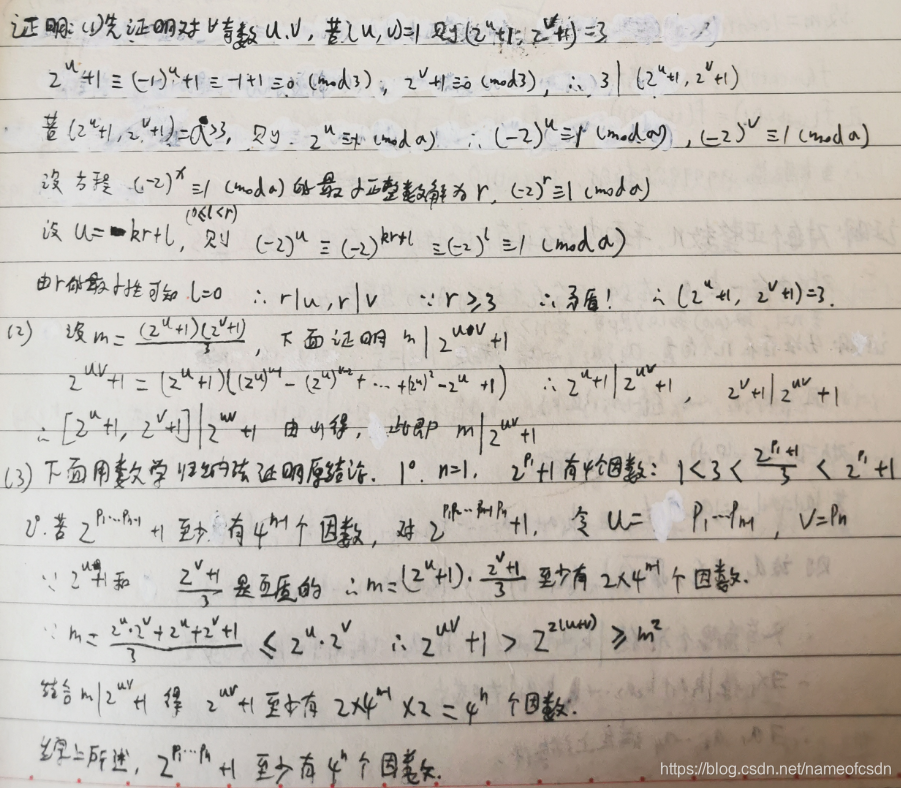 证明: (1)先证明对∀奇数u.v, 若(u,v)=1则(2^u+1, 2^v+1)=3
2^u+1≡(-1)^u+1≡-1+1≡0 (mod3), 2^v+1≡0 (mod3), ∴ 3 | (2^u+1, 2^v+1)
若(2^u+1, 2^v+1)=a>3, 则 2^u≡-1 (mod a) ∴ (-2)^u≡1 (mod a), (-2)^v≡1 (mod a)
设方程 (-2)^x≡1 (mod a) 的最小正整数解为r, (-2)^r≡1 (mod a)
设 u=kr+l, (0≤l<r) 则 (-2)^u≡(-2)^{kr+l}≡(-2)^l≡1 (mod a)
由r的最小性可知 l=0 ∴ r|u, r|v ∵ r≥3 ∴矛盾! ∴ (2^u+1, 2^v+1)=3.
(2) 设m=(2^u+1)(2^v+1)/3, 下面证明 m | 2^{uv}+1
2^{uv}+1=(2^u+1)((2^u)^{v-1}-(2^u)^{v-2}+…+(2^u)^2-2^u+1) ∴ 2^u+1 | 2^{uv}+1, 2^v+1 | 2^{uv}+1
∴ [2^u+1, 2^v+1] | 2^{uv}+1 由(1)得, 此即 m | 2^{uv}+1
(3) 下面用数学归纳法证明原结论. 1° n=1. 2^{p_1}+1有4个因数: 1<3<(2^{p_1}+1)/3<2^{p_1}+1
2° 若 2^{p_1…p_{n-1}}+1 至少有4^{n-1}个因数, 对 2^{p_1p_2…p_{n-1}p_n}+1, 令 u= p_1…p_{n-1}, v=p_n
∵ 2^u+1和 (2^v+1)/3 是互质的 ∴m=(2^u+1)·(2^v+1)/3 至少有2×4^{n-1}个因数.
∵ m=(2^u·2^v+2^u+2^v+1)/3 ≤ 2^u·2^v ∴ 2^{uv}+1>2^{2(u+v)}≥m^2
结合 m | 2^{uv}+1 得 2^{uv}+1至少有 2×4^{n-1}×2=4^n 个因数.
综上所述, 2^{p_1…p_n}+1 至少有4^n个因数.
https://blog.csdn.net/nameofcsdn